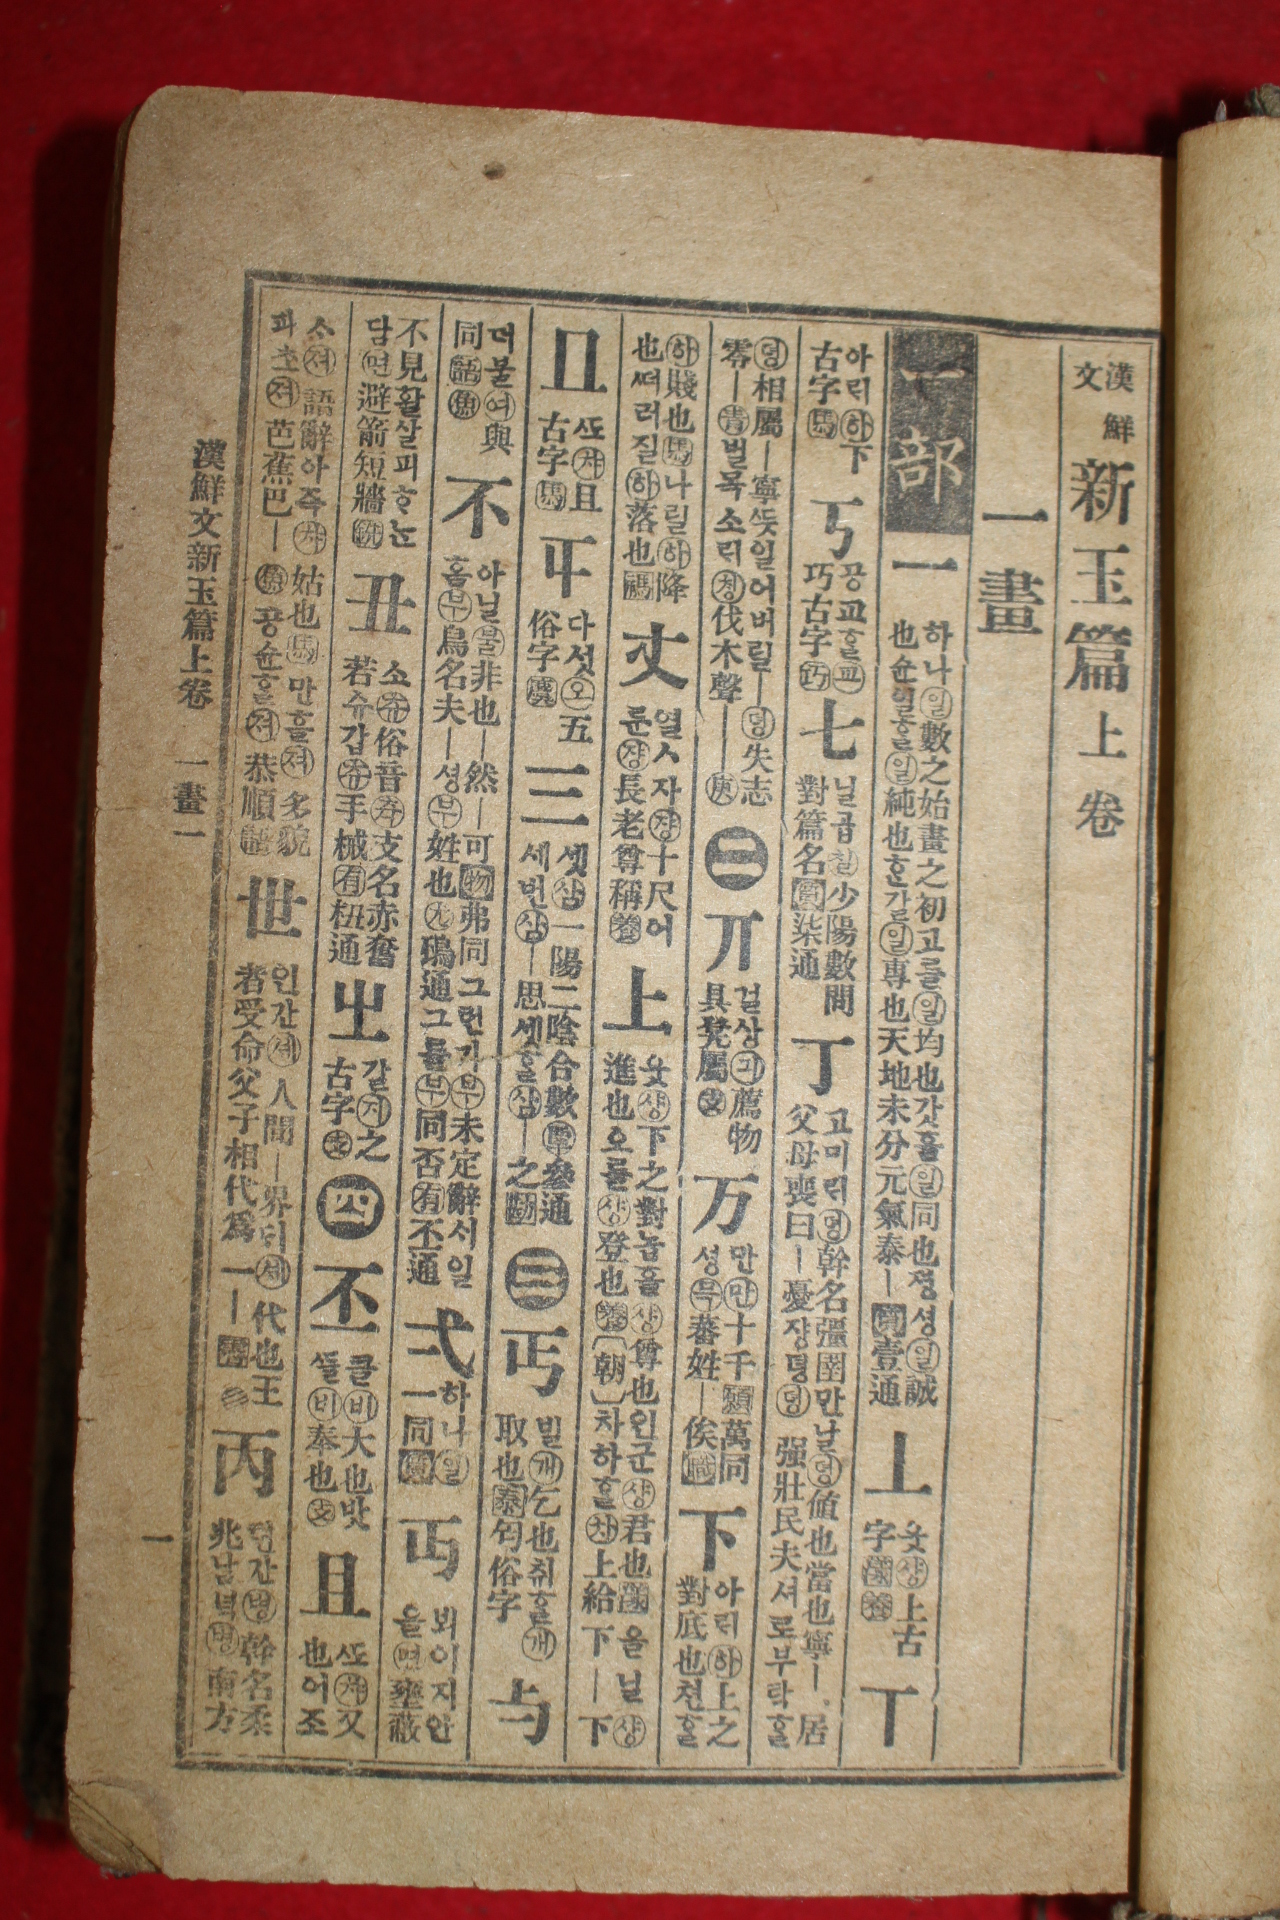 漢鮮文 新玉篇 上卷
一畫
一部 一 하나㊀數之始畫之初고를일均也갓흘일同也졍셩일誠也슌일홀일純也흔갈일專也天地未分元氣泰丨質壹通 丄 웃샹上古字漾養 丅
아릭하下古字馬 丂 공교홀교巧古字巧 七 닐곱칠少陽數問對篇名質柒通 丁 고미릭뎡幹名彊圉만날뎡値也當也寧丨居父母喪曰丨憂쟝뎡뎡强壯民夫셔로부탁홀
뎡相屬丨寧쓋일어버릴丨뎡失志零丨靑벌목소릭졍伐木聲丨丨庚 二 丌 걸상긔薦物具凳屬支 万 만만十千願萬同셩믁蕃姓丨俟職 下 아릭하上之對底也쳔홀
하賤也馬나릴하降也떠러질하落也禡 丈 열ㅅ자쟝十尺어룬쟝長老尊稱養 上 웃샹下之對놉흘샹尊也인군샹君也漾올닐샹進也오를샹登也養〔朝〕차하홀차上給下丨下
㫖 ᄯᅩ챠且古字馬 㐄 다섯오五俗字麌 三 셋삼一陽二陰合數覃參通세번삼丨思셋홀삼丨之勘 三 丐 빌개乞也취홀개取也泰匄俗字 与
더불여與同語魚 不 아닐불非也丨然丨可物弗同그런가부未定辭서일홈부鳥名夫丨셩부姓也尤鳺通그를부同否有丕通 弌 하나일一同質 丏 뵈이지안을면壅蔽
不見활살피호눈담면避箭短牆銑 丑 소츄俗音축支名赤奮若슈갑츄手械有杻通 㞢 갈지之古字支 四 丕 클비大也밧들비奉也支 且 ᄯᅩ챠又也어조
소져語辭아즉챠姑也馬만흘져多貌파초져芭蕉巴丨魚공슌홀져恭順語 世 인간셰人間丨界딕셰代也王者受命父子相代爲一丨霽 丙 텬간병幹名柔兆남녁병南方
漢鮮文新玉篇上卷 一畫一
一